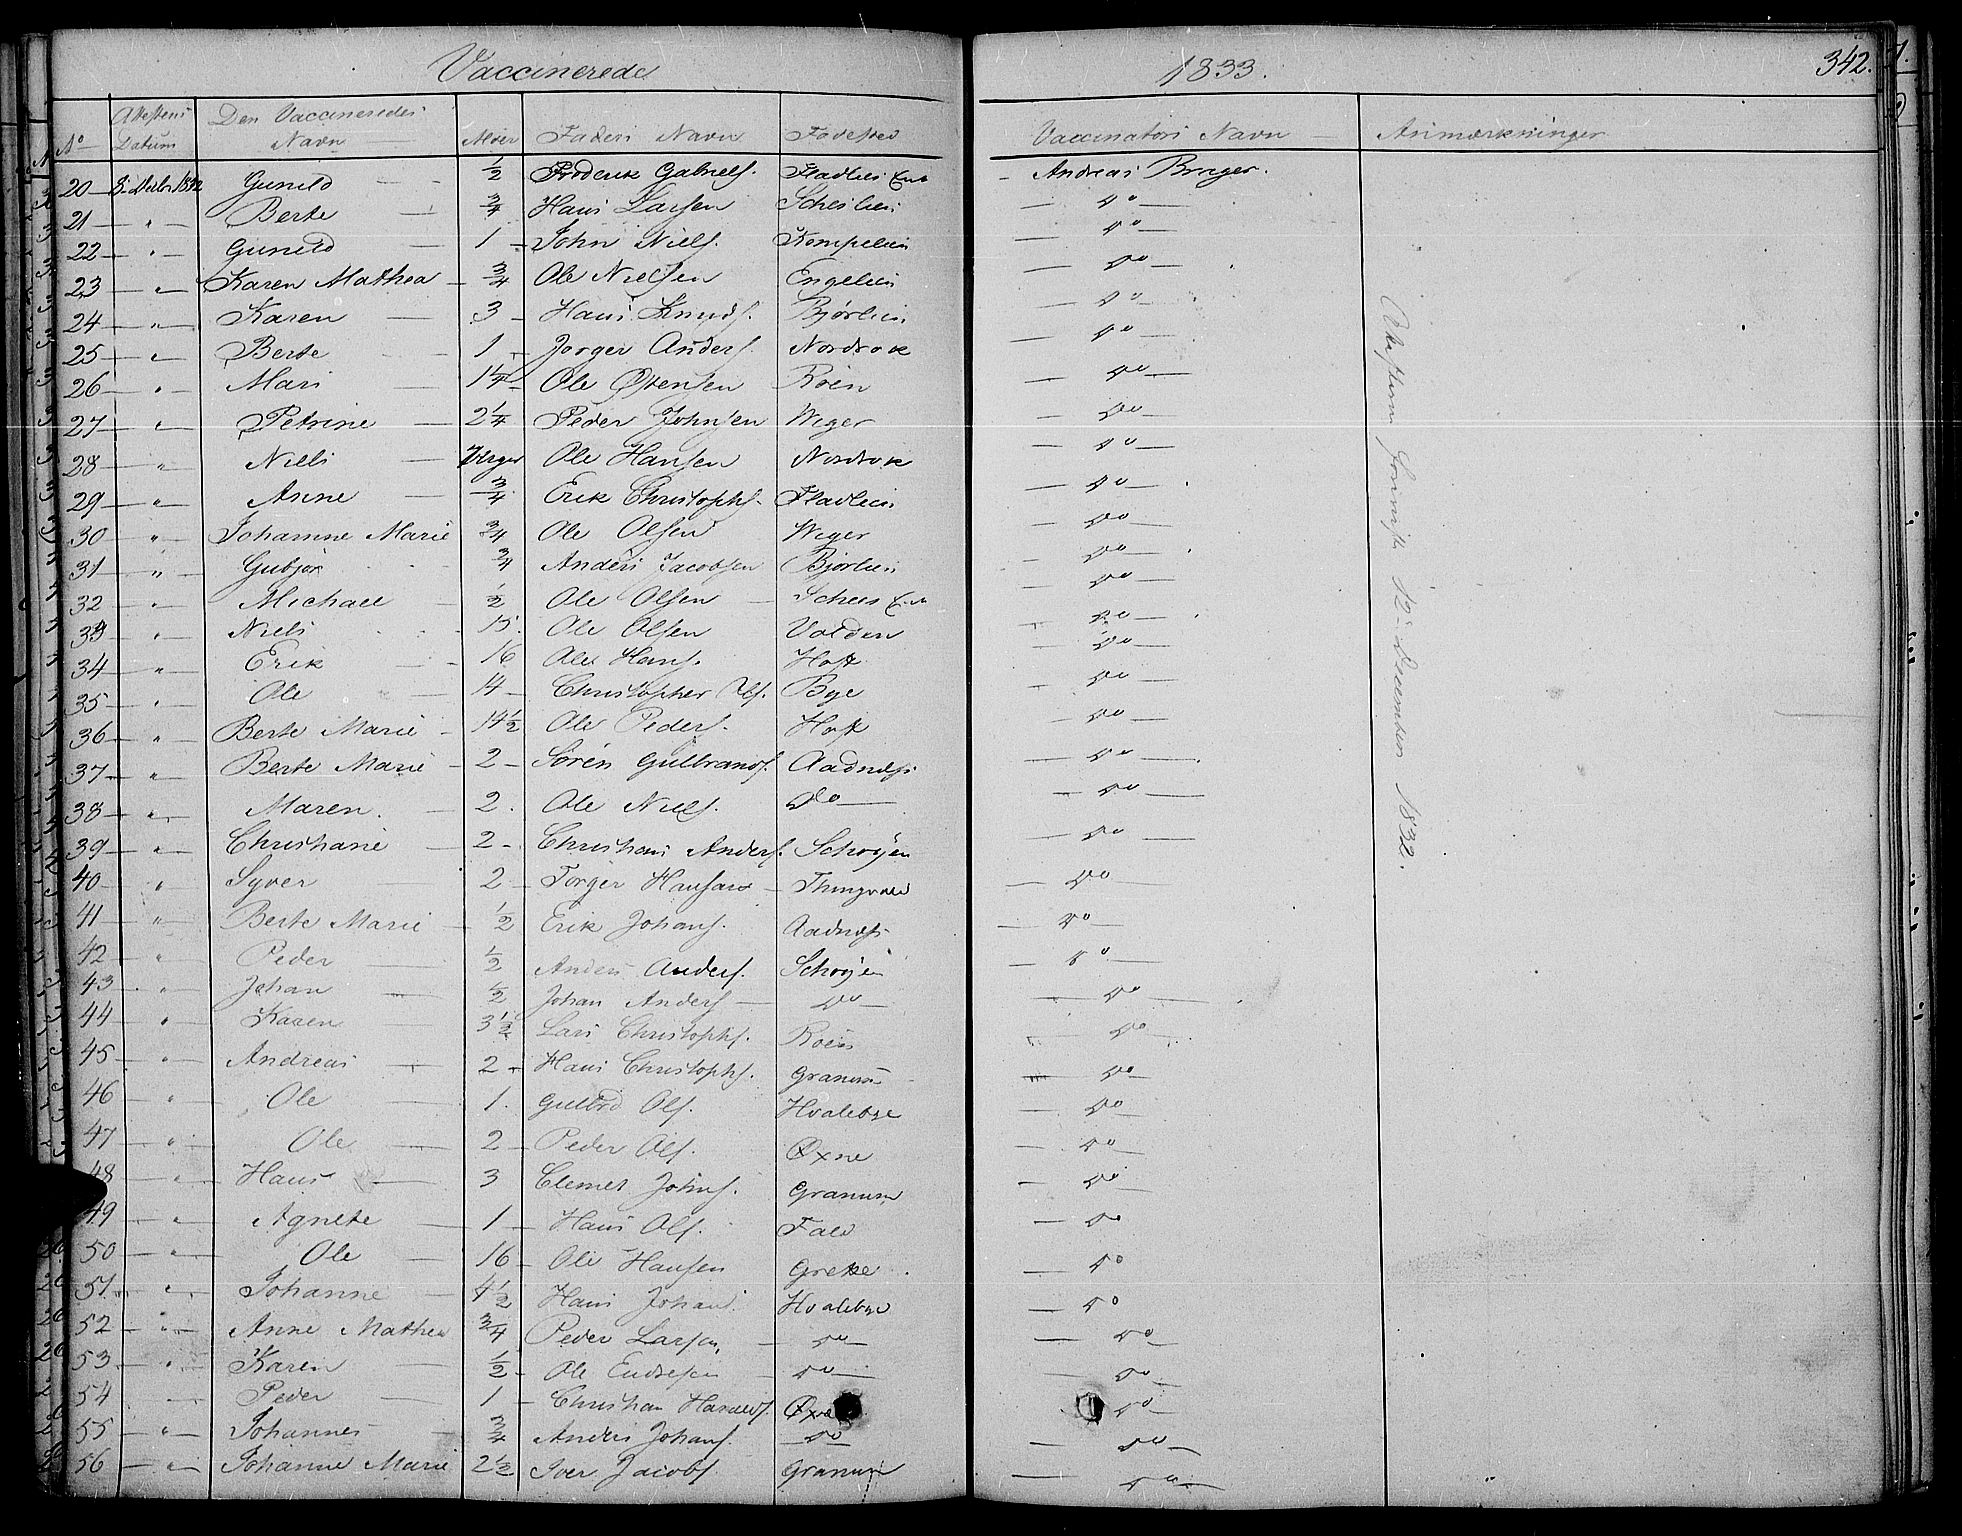 Vaccinerede 1833. 342.
No Attestens Datum Den Vaccineredes Navn Alder Faders Navn Fødested Vaccinators Navn Anmærkninger
20 8 Decbr 1832 Gunild ½ Frederik Gabriels. Fladlien Andreas Brager.
21 " Berte ¾ Hans Larsen Do
22 " Gunild 1 John Niels. Kompelien Do
23 " Karen Mathea ¾ Ole Nielsen Engelien Do
24 " Karen 3 Hans Knuds. Bjørlien Do
25 " Berte 1 Jørger Anders. Do
26 " Mari 1¼ Ole Østensen Roen Do
27 " Petrine 2¼ Peder Johnsen Weger Do
28 " Niels Ole Hansen Do
29 " Anne ¾ Erik Christophs. Fladlien Do
30 " Johanne Marie ¾ Ole Olsen Weger Do
31 " Gubjør ¾ Anders Jacobsen Bjørlien Do
32 " Michael ½ Ole Olsen Do
33 " Niels 15 Ole Olsen Volden Do
34 " Erik 16 Ole Hans. Hoff Do
35 " Ole 14 Christopher Ols. Bye Do
36 " Berte Marie 14½ Ole Peders. Hoff Do
37 " Berte Marie 2 Søren Gulbrands. Aadnæs Do
38 " Maren 2 Ole Niels. Do Do
39 " Christiane 2 Christians Anders. Schøyen Do
40 " Syver 2 Torger Hansen Thingvold Do
41 " Berte Marie ½ Erik Johans. Aadnæs Do
42 " Peder ½ Anders Anders. Schøyen Do
43 " Johan ½ Johan Anders Do Do
44 " Karen 3½ Lars Christophs. Roen Do
45 " Andreas 2 Hans Christophs. Granum Do
46 " Ole 1 Gulbrd Ols. Hvalebye Do
47 " Ole 2 Peder Ols. Øxne Do
48 " Hans 3 Clemet Johns. Granum Do
49 " Agnete 1 Hans Ols. Fald Do
50 " Ole 16 Ole Hansen Do
51 " Johanne 4½ Hans Johans. Hvalebye Do
52 " Anne Mathea ¾ Peder Larsen Do Do
53 " Karen ½ Ole Endresen Do Do
54 " Peder 1 Christian Haralds. Øxne Do
55 " Johannes ¾ Anders Johans. Do Do
56 " Johanne Marie 2½ Iver Jacobs. Granum Do
12 December 1832.